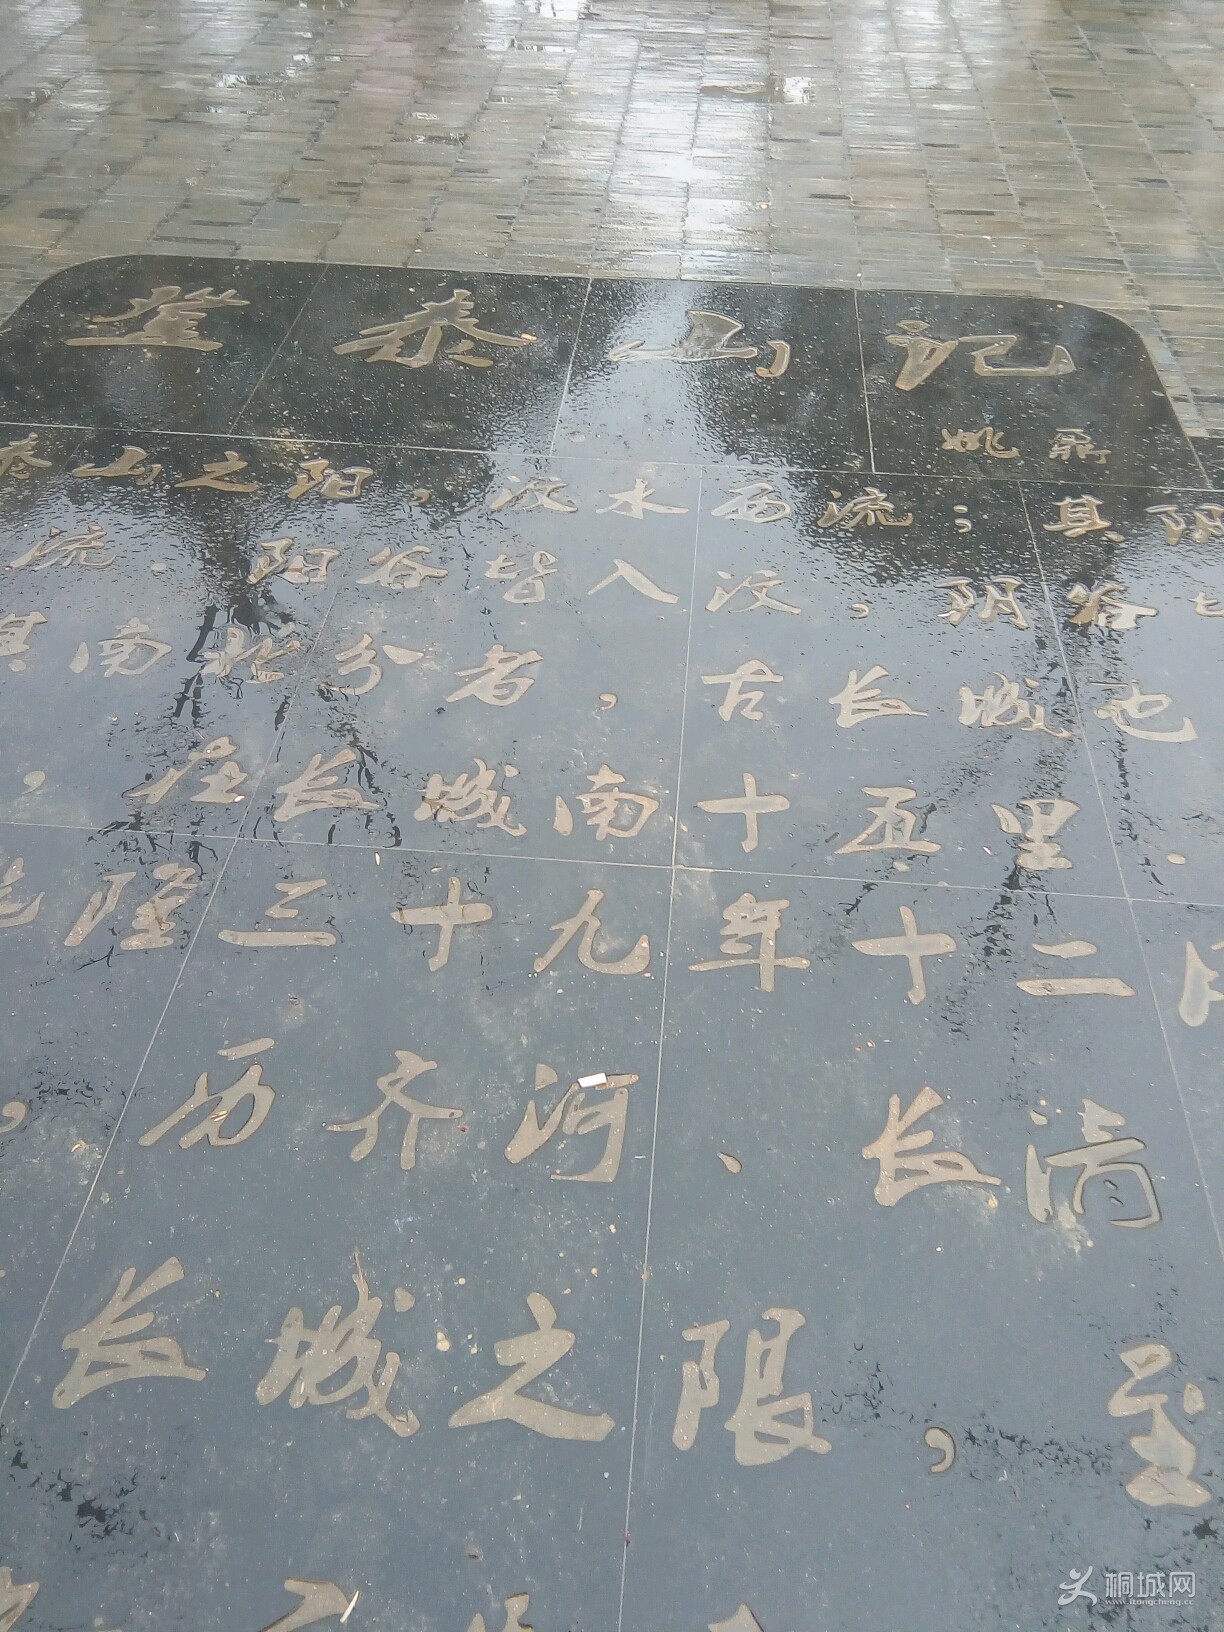 登泰山记
姚鼐
泰山之阳，汶水西流；其阴
流．阳谷皆入汶，阴谷
其南北分者，古长城也
，在长城南十五里．
隆三十九年十二月
，历齐河、长清
长城之限，至
桐城网
www.itongcheng.cc